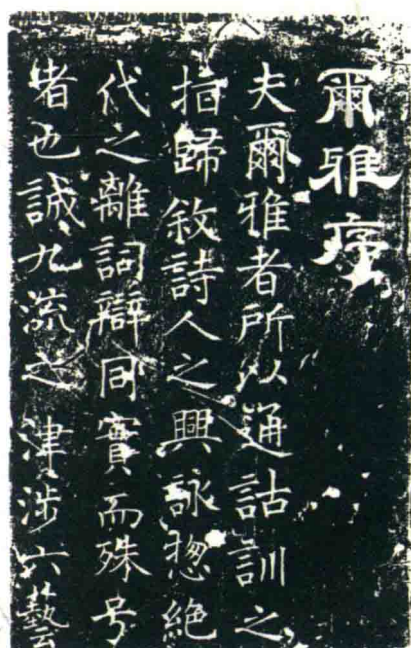 爾雅序
夫爾雅者所以通詁訓之
指歸敘詩人之興詠揔絶
代之離詞辯同實而殊号
者也誠九流之津涉六藝